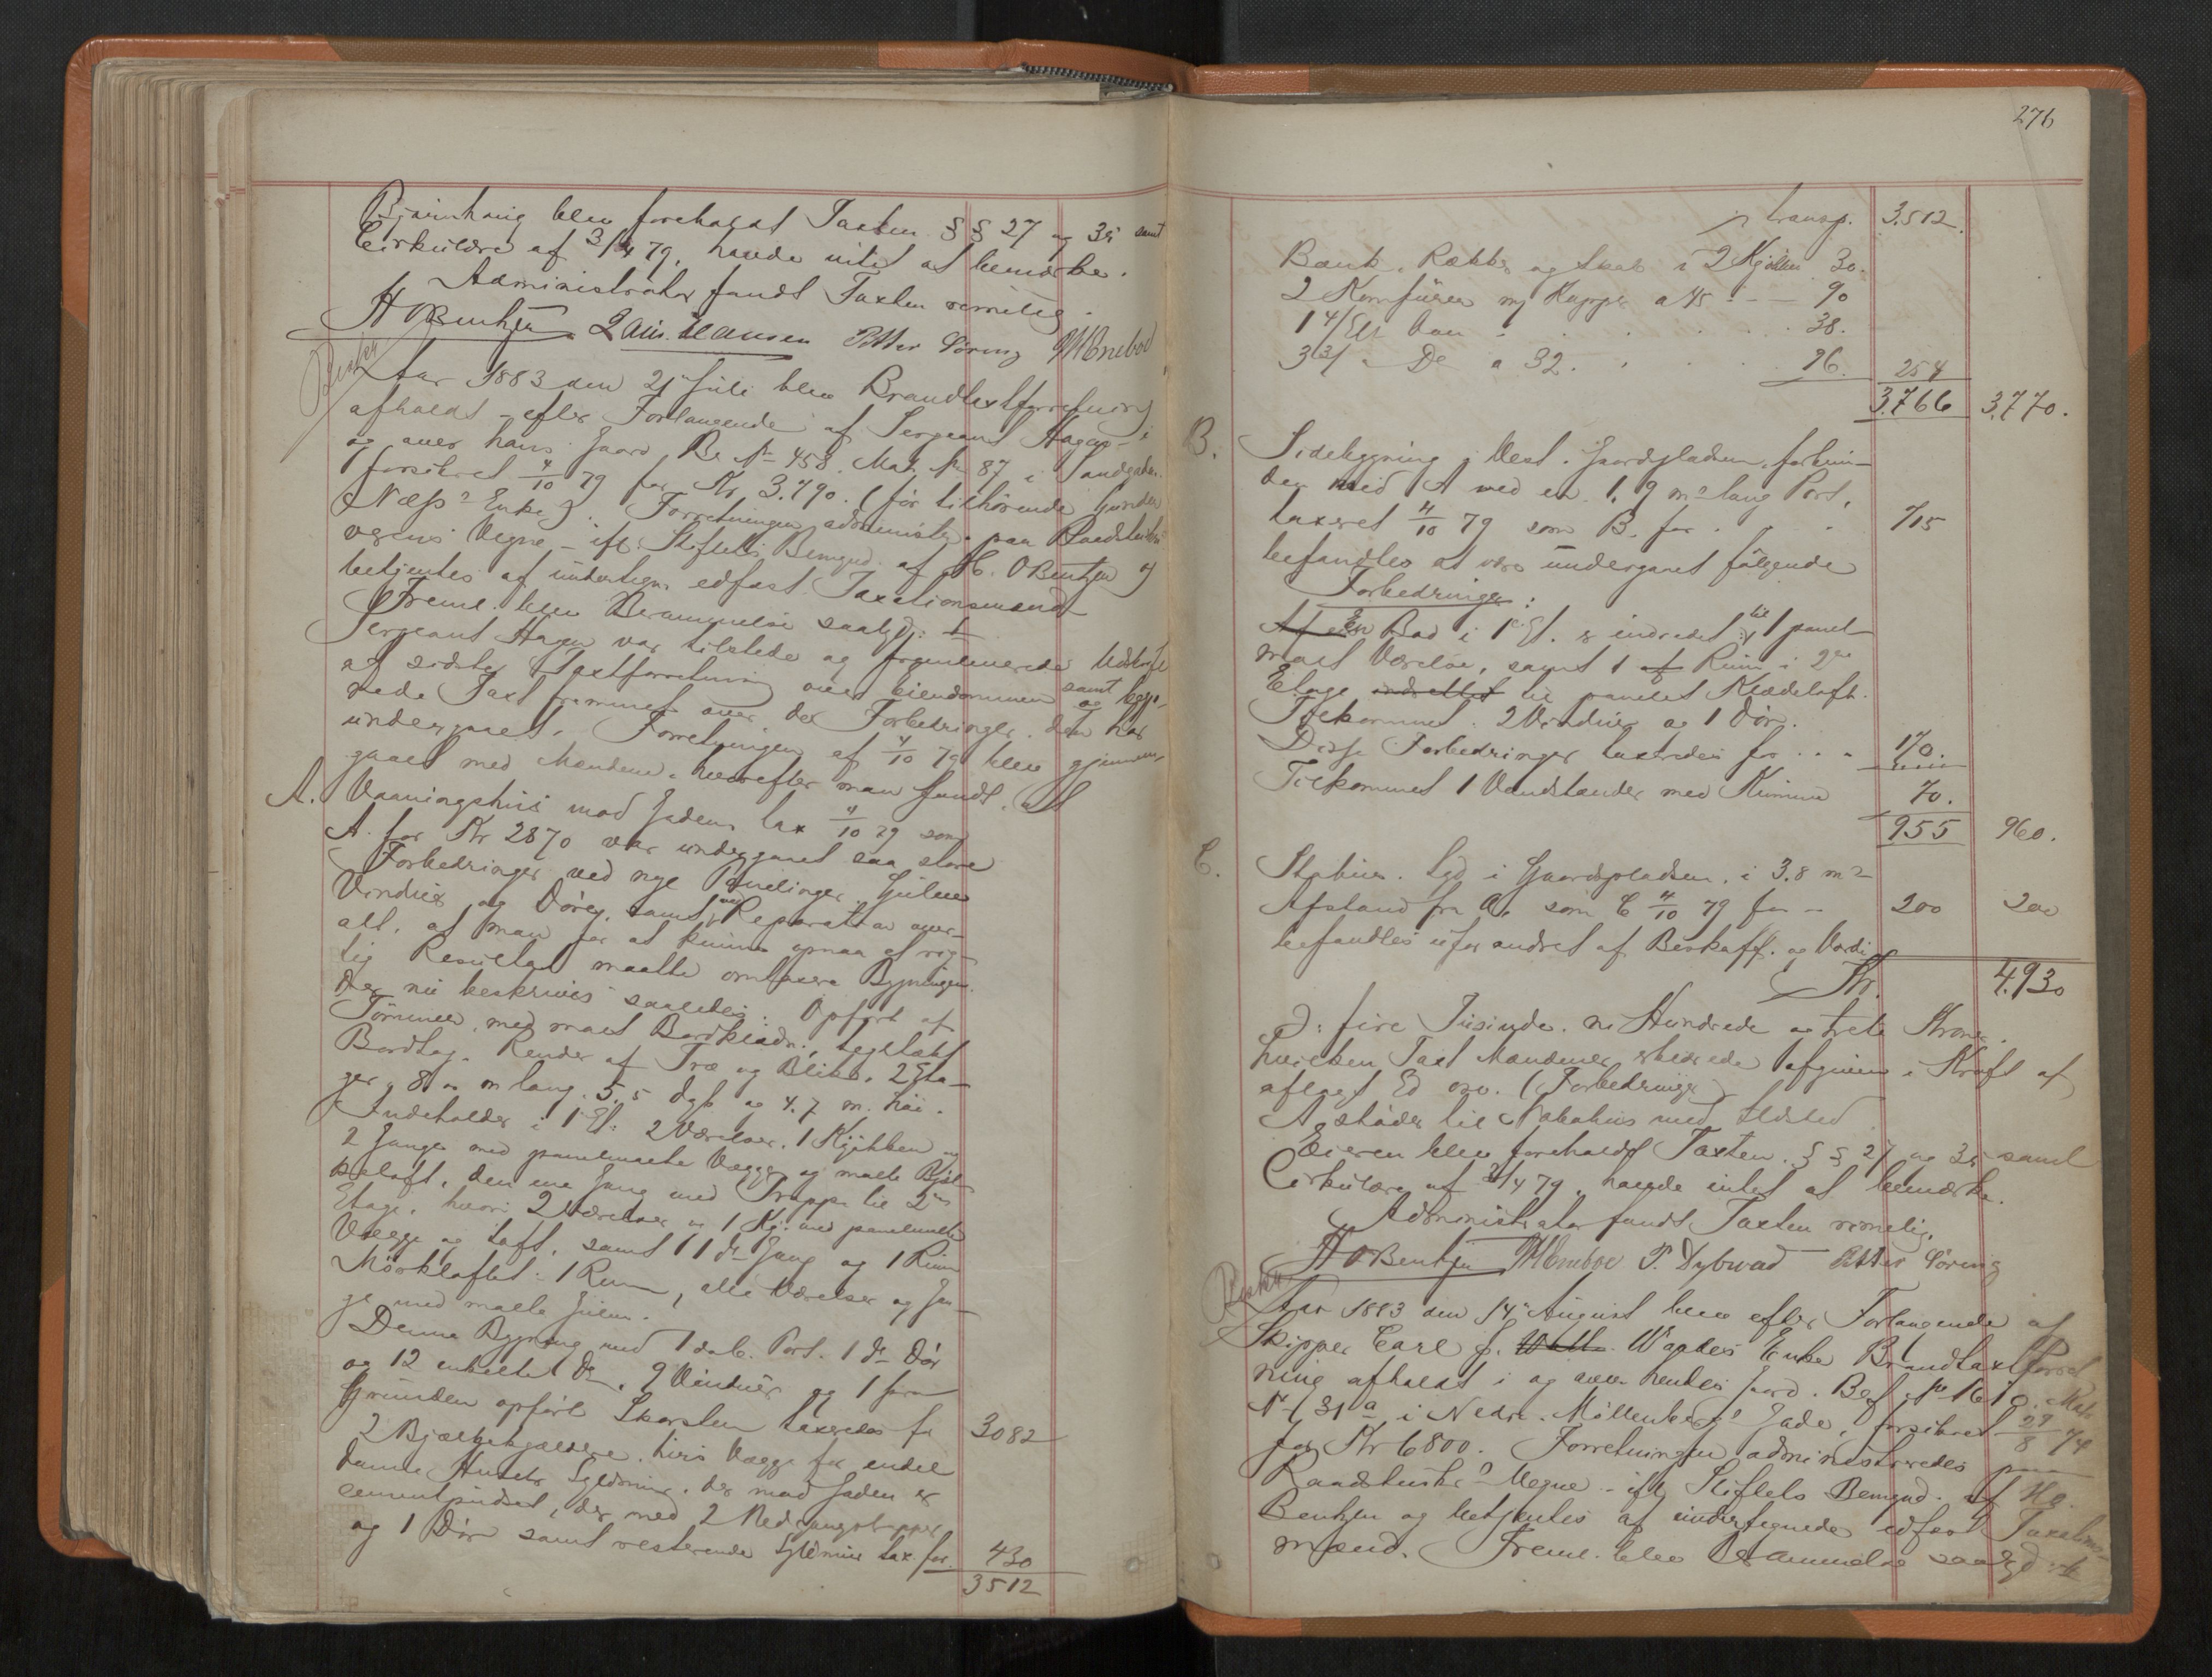 Bjørnhaug blev foreholdt Taxtens §§ 27 og 35 samt
Cirkulære af 3/4 79, havde intet at bemærke.
Administrator fandt Taxten rimelig.
H OBentzen Laur. Hansen Petter Søring
Aar 1883 den 21 Juli blev Brandtaxtforretning
afholdt efter Forlangende af Sergeant Hagen i
og over hans Gaard Be. No 458. Mat. No 87 i Sandgaden
forsikret 4/10 79 for Kr. 3.790. (før tilhørende
Næss's Enke). Forretningen administr. paa Raadstue
Vegne ifl. Stiftets Bemynd. af H. OBentzen og
betjentes af undertegn. edfast Taxationsmænd
Freml. blev Berammelse saalyd:
Sergeant Hagen var tilstede og fremlemerede Udskrift
af sidste Taxtforretning over Eiendommen samt begjæ-
rede Taxt fremmet over de Forbedringer, den har
undergaaet. Forretningen af 4/10 79 blev gjennem-
gaaet med Mændene, hvorefter man fandt, at
A. Vaaningshus mod Gaden tax 4/10 79 som
A. for Kr 2870 var undergaaet saa store
Forbedringer ved nye Panelinger, Gulve
Vinduer og Døre, samt Reparation over-
alt, at man for at kunne opnaa et rig-
tig Resultat maatte omtaxere Bygningen.
Der nu beskrives saaledes: Opført af
Tømmer, med malt Bordklædn., teglstækt
Bordtag. Render af Træ og Blik. 2 Eta-
ger, 8 m lang 5.5 dyb og 4.7 m. høi.
Indeholder i 1 Et: 2 Værelser. 1 Kjøkken og
2 Gange med panelmalte Vægge og malte Bjæl-
keloft, den ene Gang med Trappe til 2den
Etage, hvori 2 Værelser og 1 Kj: med panelmalte
Vægge og Loft, samt 1 do Gang og 1 Rum
Mørkloftet: 1 Rum, alle Værelser og Gan-
ge med malte Gulve.
Denne Bygning med 1 dob. Port. 1 do Dør
og 12 enkelte do, 9 Vinduer og 1 fra
Grunden opført Skorsten taxeredes for 3082
2 Bjælkekjældere, hvis Vægge for endel
danne Husets Syldmur, der mod Gaden er
cementpudset, der med 2 Nedgangstrapper
og 1 Dør samt resterende Syldmur tax. for 430
3512
276
transp. 3.512.
Bænk, Rækker og Skab i 2 Kjøkken 30.
2 Komfurer m/ Kapper a 45 - - 90
1 4/Et Ovn . . . . 38.
3 3/ " Do a 32. . . . 96. 254
3.766 3.770.
B. Sidebygning i Vest. Gaardspladsen, forbun-
den med A ved en 1.9 m lang Port,
taxeret 4/10 79 som B. for . . . 715
befandtes at være undergaaet følgende
Forbedringer:
En Bod i 1 Et. er indredet til 1 panel-
malt Værelse, samt 1 Rum i 2den
Etage indrettet til panelet Klædeloft.
Tilkommet 2 Vinduer og 1 Dør.
Disse Forbedringer taxtredes for . . . 170.
Tilkommet 1 Vandstander med Kumme 70.
955 960.
C. Stabur. bgd i Gaardspladsen, i 3.8 m
Afstand fra A, som C 4/10 79 for - 200 200
befandtes uforandret af Beskaff. og Værdi
Kr. 4.930
ɔ: fire Tusinde ni Hundrede og treti Kroner.
hvilken Taxt Mændene erklærede afgiven i Kraft af
aflagt Ed osv. (Forbedringer)
A støder til Nabohus med Ildsted
Eieren blev foreholdt Taxtens §§ 27 og 35 samt
Cirkulære af 3/4 79, havde intet at bemærke.
Administrator fandt Taxten rimelig.
H OBentzen P. Dybwad Petter Søring
Aar 1883 den 14 August blev efter Forlangende af
Skipper Carl J. Enke Brandtaxtforret
ning afholdt i og over hendes Gaard. Bef. No 161
No 31 a i Nedre Møllenbergs Gade, forsikret 29/8 74
for Kr 6800. Forretningen administreredes paa
Raadstuens Vegne - ifl. Stiftets Bemynd. af H O.
Bentzen og betjentes af undertegnede edfast Taxations-
mænd. Freml. blev Berammelse saalyd: